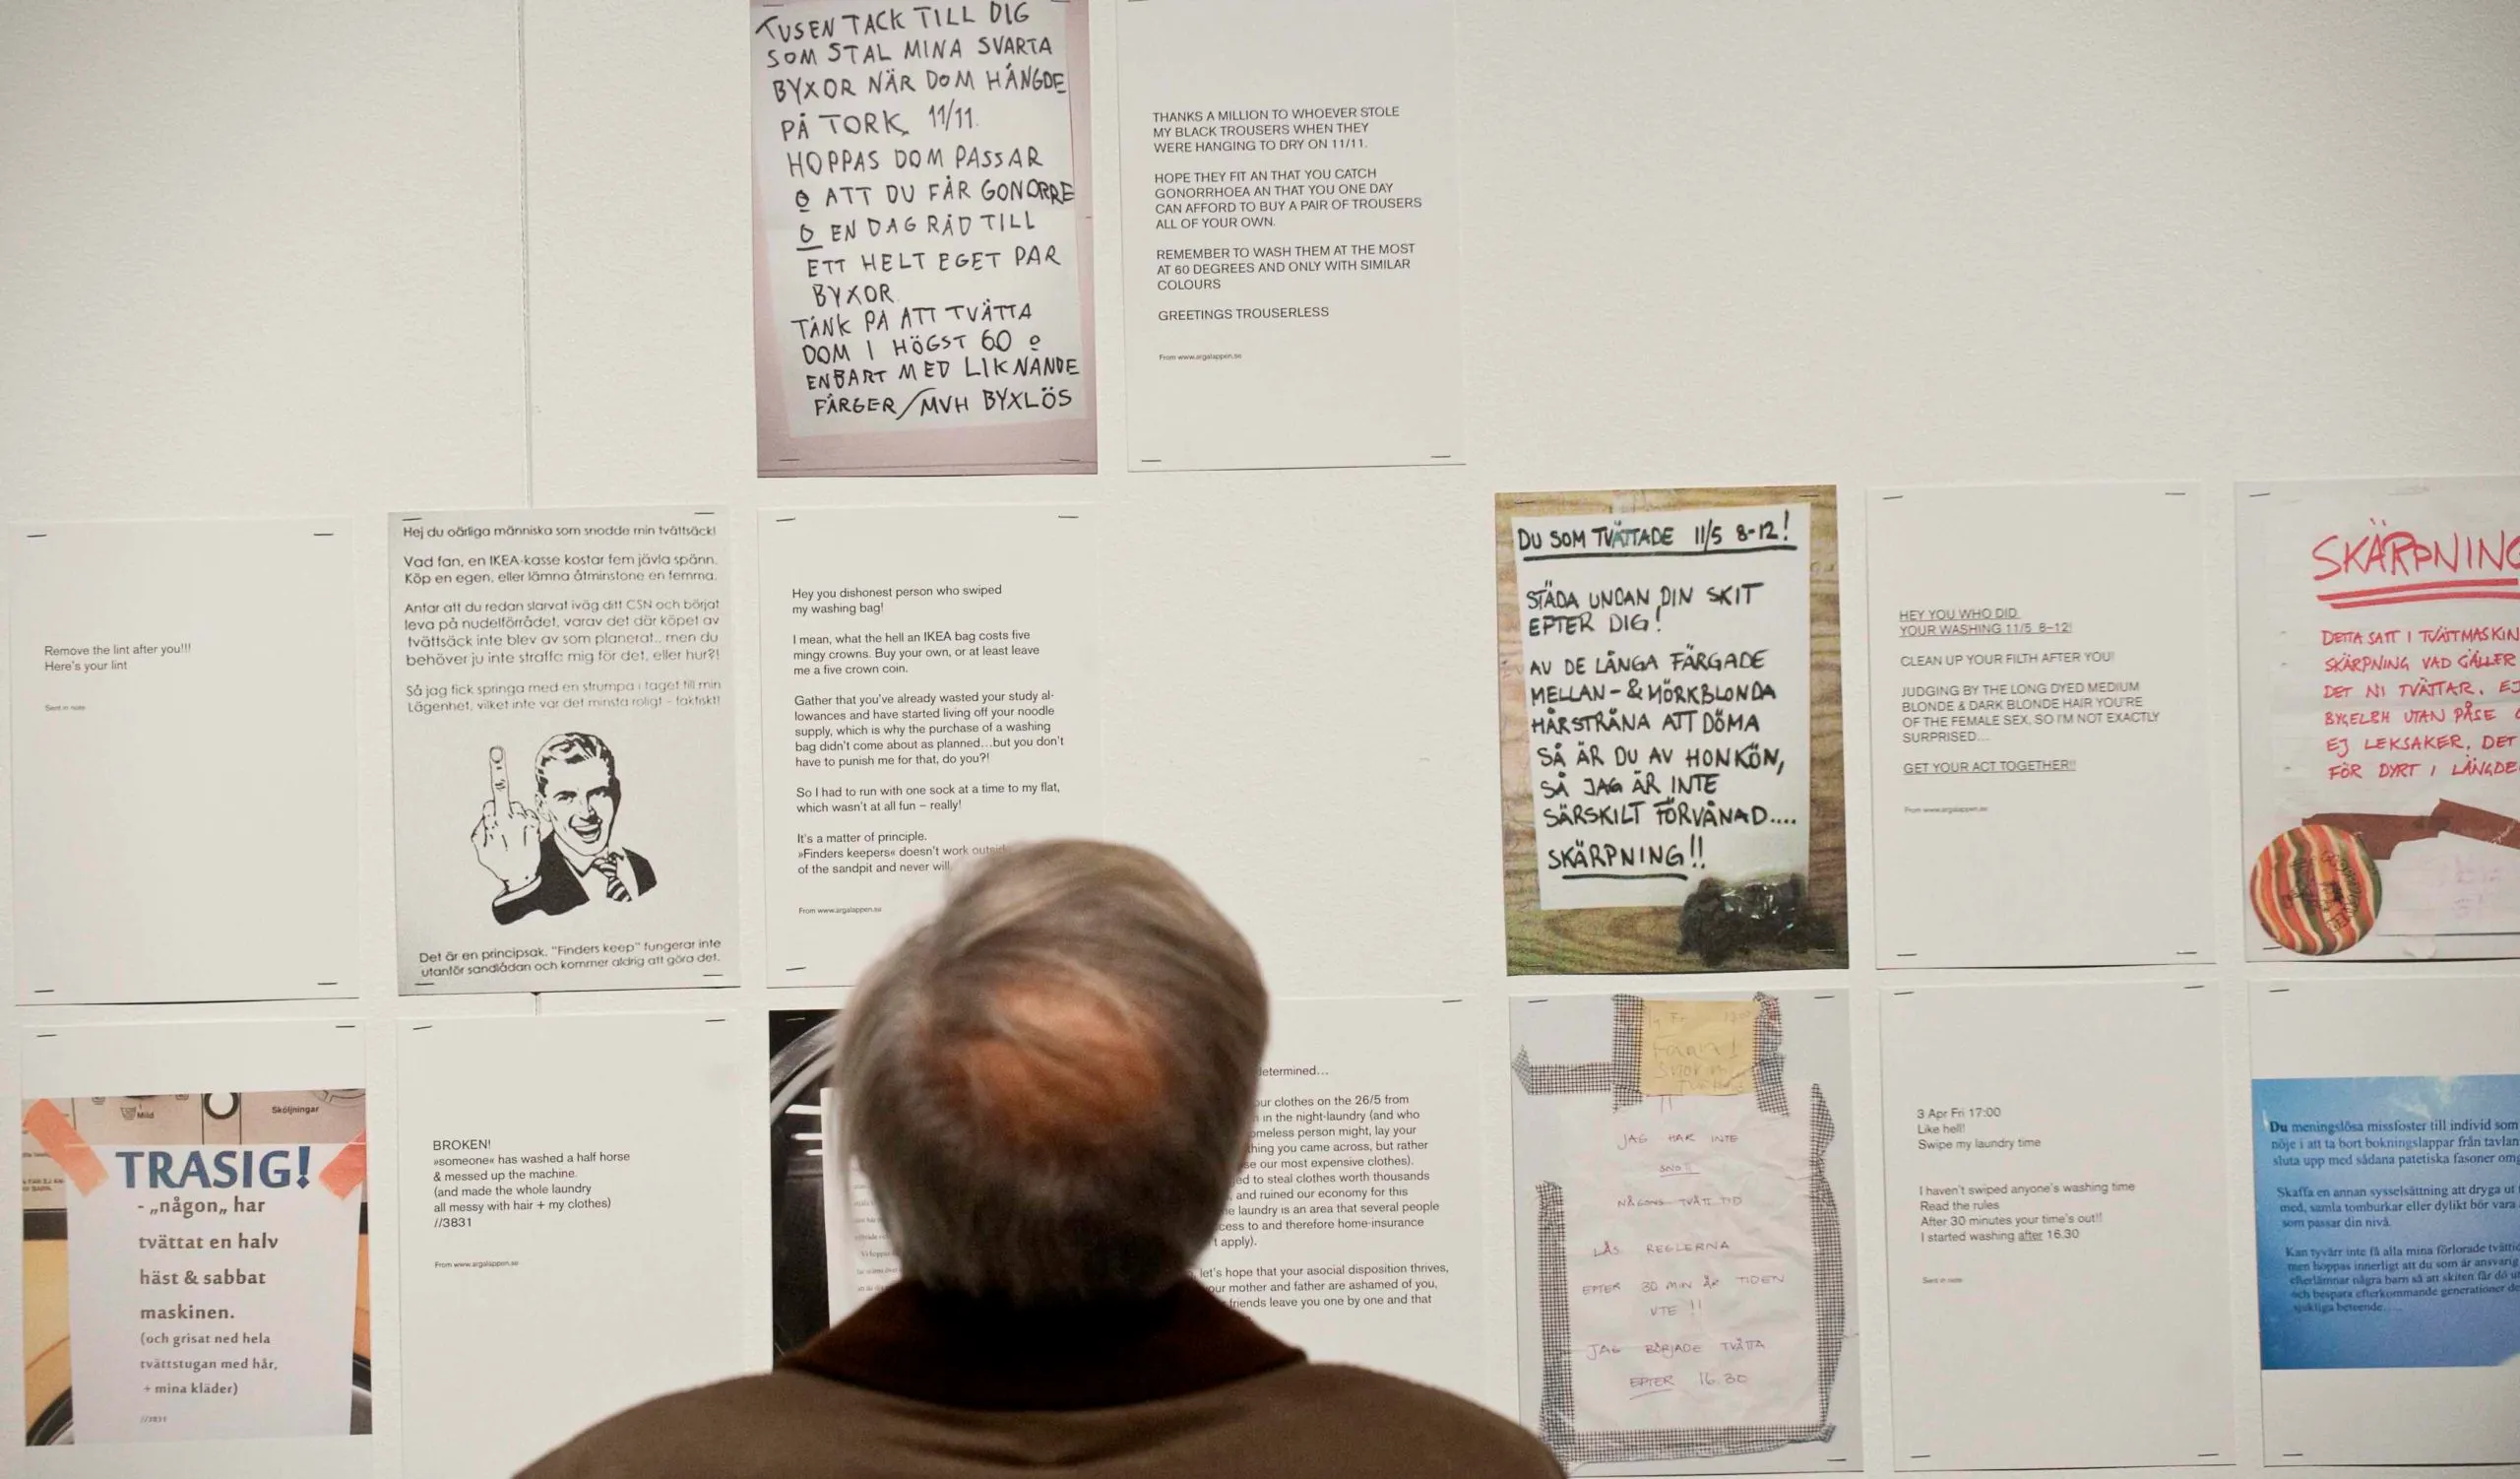 TUSEN TACK TILL DIG
SOM STAL MINA SVARTA
BYXOR NÄR DOM HÄNGDE
PÅ TORK, 11/11.
HOPPAS DOM PASSAR
O ATT DU FÅR GONORRE
O EN DAG RÅD TILL
ETT HELT EGET PAR
BYXOR
TÄNK PÅ ATT TVÄTTA
DOM I HÖGST 60 O
ENBART MED LIKNANDE
FÄRGER/MVH BYXLÖS
THANKS A MILLION TO WHOEVER STOLE
MY BLACK TROUSERS WHEN THEY
WERE HANGING TO DRY ON 11/11.
HOPE THEY FIT AN THAT YOU CATCH
GONORRHOEA AN THAT YOU ONE DAY
CAN AFFORD TO BUY A PAIR OF TROUSERS
ALL OF YOUR OWN.
REMEMBER TO WASH THEM AT THE MOST
AT 60 DEGREES AND ONLY WITH SIMILAR
COLOURS
GREETINGS TROUSERLESS
From www.argalappen.se
Remove the lint after you!!!
Here's your lint
Sent in note
Hej du oärliga människa som snodde min tvättsäck!
Vad fan, en IKEA-kasse kostar fem jävla spänn.
Köp en egen, eller lämna åtminstone en femma.
Antar att du redan slarvat iväg ditt CSN och börjat
leva på nudelförrådet, varav det där köpet av
tvättsäck inte blev av som planerat.. men du
behöver ju inte straffa mig för det, eller hur?!
Så jag fick springa med en strumpa i taget till min
Lägenhet, vilket inte var det minsta roligt - faktiskt!
Det är en principsak. "Finders keep" fungerar inte
utanför sandlådan och kommer aldrig att göra det.
Hey you dishonest person who swiped
my washing bag!
I mean, what the hell an IKEA bag costs five
mingy crowns. Buy your own, or at least leave
me a five crown coin.
Gather that you've already wasted your study al-
lowances and have started living off your noodle
supply, which is why the purchase of a washing
bag didn't come about as planned...but you don't
have to punish me for that, do you?!
So I had to run with one sock at a time to my flat,
which wasn't at all fun – really!
It's a matter of principle.
»Finders keepers« doesn't work outsid
of the sandpit and never will
From www.argalappen.se
DU SOM TVÄTTADE 11/5 8-12!
STÄDA UNDAN DIN SKIT
EFTER DIG!
AV DE LÅNGA FÄRGADE
MELLAN- & MÖRKBLONDA
HÅRSTRÅNA ATT DÖMA
SÅ ÄR DU AV HONKÖN,
SÅ JAG ÄR INTE
SÄRSKILT FÖRVÅNAD....
SKÄRPNING!!
HEY YOU WHO DID
YOUR WASHING 11/5 8–12!
CLEAN UP YOUR FILTH AFTER YOU!
JUDGING BY THE LONG DYED MEDIUM
BLONDE & DARK BLONDE HAIR YOU'RE
OF THE FEMALE SEX, SO I'M NOT EXACTLY
SURPRISED...
GET YOUR ACT TOGETHER!!
From www.argalappen.se
SKÄRPNING
DETTA SATT I TVÄTTMASKIN
SKÄRPNING VAD GÄLLER
DET NI TVÄTTAR. EJ
BYGELBH UTAN PÅSE
EJ LEKSAKER, DET
FÖR DYRT I LÄNGDE
Mild
Sköljningar
TRASIG!
- „någon„ har
tvättat en halv
häst & sabbat
maskinen.
(och grisat ned hela
tvättstugan med hår,
+ mina kläder)
//3831
BROKEN!
»someone« has washed a half horse
& messed up the machine.
(and made the whole laundry
all messy with hair + my clothes)
//3831
From www.argalappen.se
determined...
our clothes on the 26/5 from
in the night-laundry (and who
omeless person might, lay your
thing you came across, but rather
se our most expensive clothes).
ed to steal clothes worth thousands
and ruined our economy for this
e laundry is an area that several people
cess to and therefore home-insurance
t apply).
let's hope that your asocial disposition thrives,
our mother and father are ashamed of you,
friends leave you one by one and that
JAG HAR INTE
SNOTT
NÅGONS TVÄTTTID
LÄS REGLERNA
EFTER 30 MIN ÄR TIDEN
UTE !!
JAG BÖRJADE TVÄTTA
EFTER 16.30
3 Apr Fri 17:00
Like hell!
Swipe my laundry time
I haven't swiped anyone's washing time
Read the rules
After 30 minutes your time's out!!
I started washing after 16.30
Sent in note
Du meningslösa missfoster till individ som
nöje i att ta bort bokningslappar från tavlan
sluta upp med sådana patetiska fasoner om
Skaffa en annan sysselsättning att dryga ut
med, samla tomburkar eller dylikt bör vara
som passar din nivå.
Kan tyvärr inte få alla mina förlorade tvättid
men hoppas innerligt att du som är ansvarig
efterlämnar några barn så att skiten får dö ut
och bespara efterkommande generationer de
sjukliga beteende.....